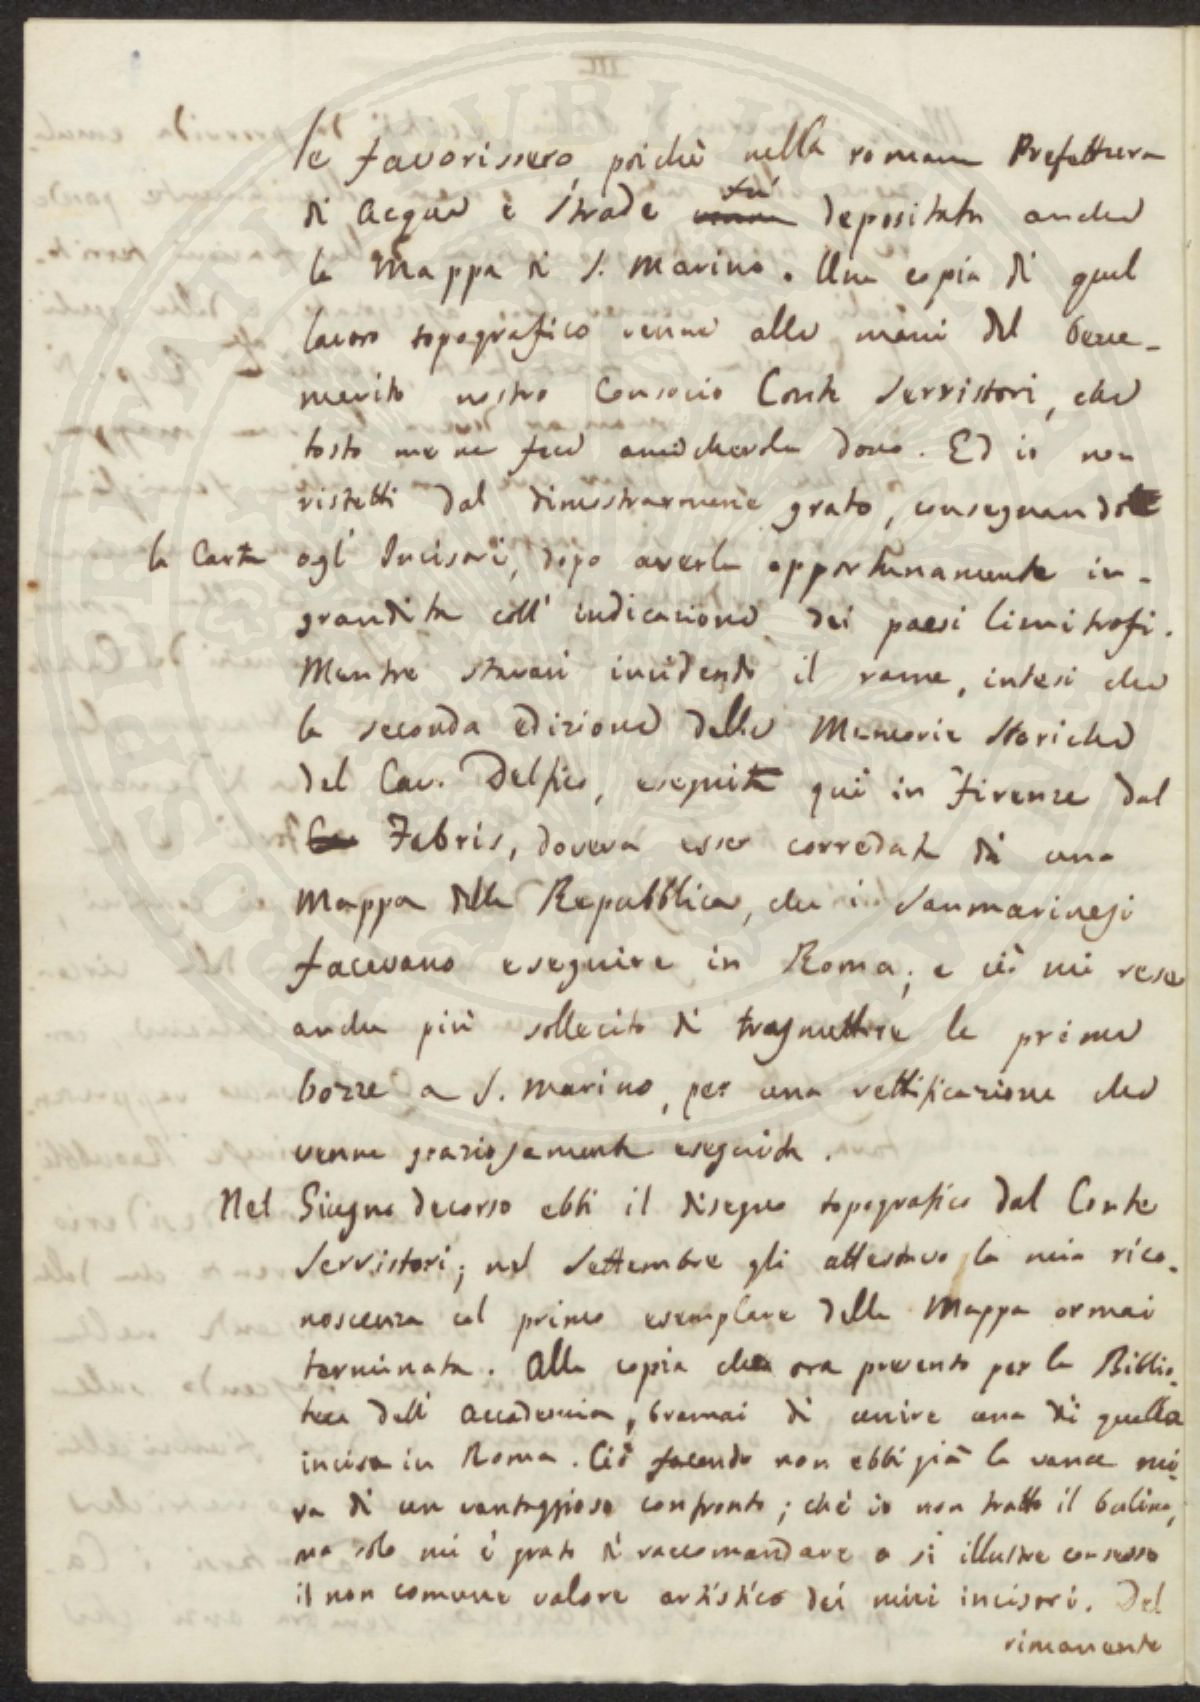 III
le favorissero, poichè nella romana Prefettura
di Acque e Strade fù depositata anche
la Mappa di S. Marino. Una copia di quel
lavoro topografico venne alle mani del bene-
merito nostro Consocio Conte Serristori, che
tosto me ne fece amichevole dono. Ed io non
ristetti dal dimostrarmene grato, consegnando
la Carta agl' Incisori, dopo averla opportunamente in-
grandita coll' indicazione dei paesi limitrofi.
Mentre stavasi incidendo il rame, intesi che
la seconda edizione delle Memorie Storiche
del Cav. Delfico, eseguita quì in Firenze dal
Fabris, doveva esser corredata di una
Mappa della Repubblica, che i Sanmarinesi
facevano eseguire in Roma; e ciò mi rese
anche più sollecito di trasmettere le prime
bozze a S. Marino, per una rettificazione che
venne graziosamente eseguita.
Nel Giugno decorso ebbi il disegno topografico dal Conte
Serristori; nel Settembre gli attestavo la mia rico-
noscenza col primo esemplare della Mappa ormai
terminata. Alla copia che ora presento per la Biblio-
teca dell' Accademia, bramai di unire una di quelle
incise in Roma. Ciò facendo non ebbi già la vana mi-
ra di un vantaggioso confronto; chè io non tratto il bulino,
ma solo mi è grato di raccomandare a sì illustre consesso
il non comune valore artistico dei miei incisori. Del
rimanente